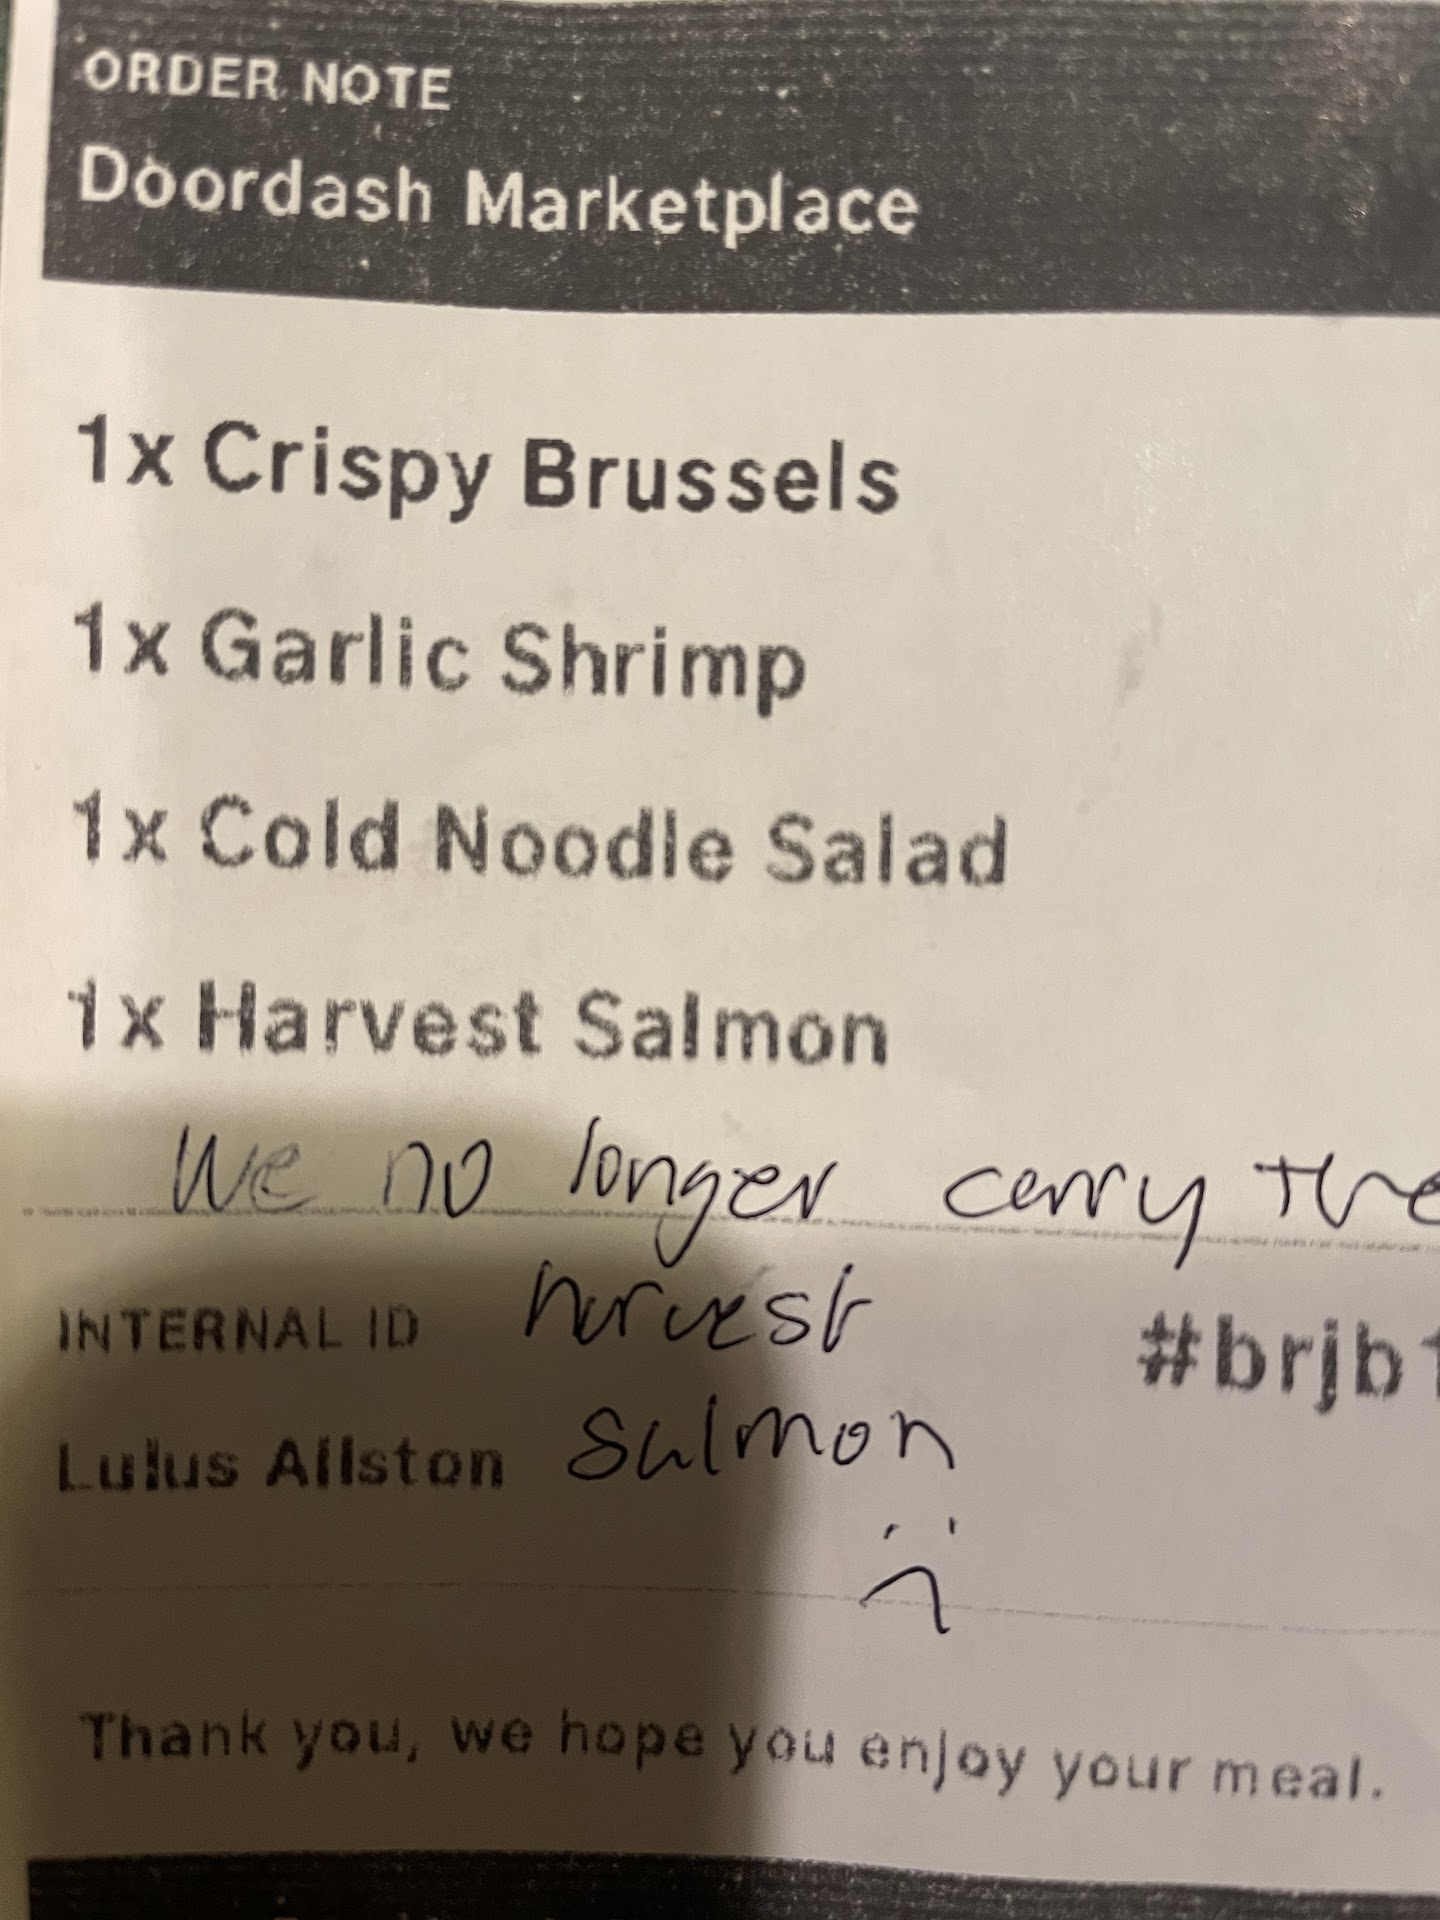 ORDER NOTE
Doordash Marketplace
1x Crispy Brussels
1x Garlic Shrimp
1x Cold Noodle Salad
1x Harvest Salmon
We no longer carry the
harvest
salmon
:(
INTERNAL ID
#brjb
Lulus Allston
Thank you, we hope you enjoy your meal.